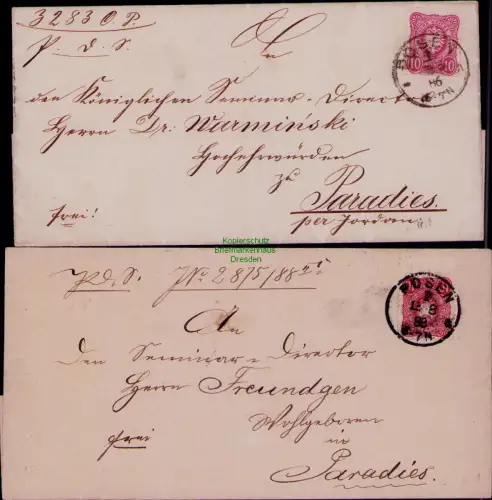 3283 O.P.
P. d. S.
An
den Königlichen Seminar-Director
Herrn Dr. Warmiński
Hochehrwürden
zu
Paradies.
per Jordan
frei!
10 10
POSEN
86
Kopierschutz
Briefmarkenhaus
Dresden
P. d. S.
An
den Seminar-Director
Herrn Freundgen
Wohlgeboren
in
Paradies.
frei
POSEN
88